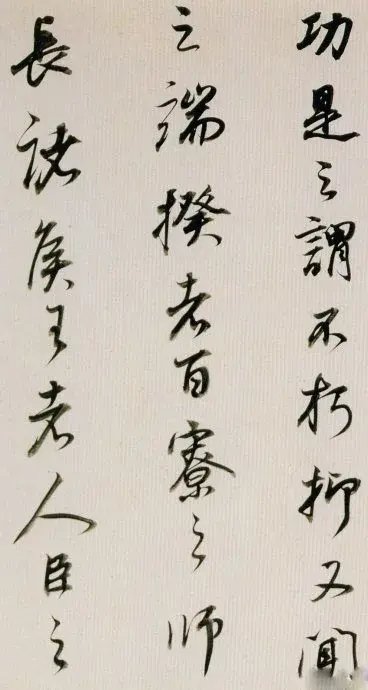 功是之謂不朽抑又聞
之端揆者百寮之师
長諸侯王者人臣之